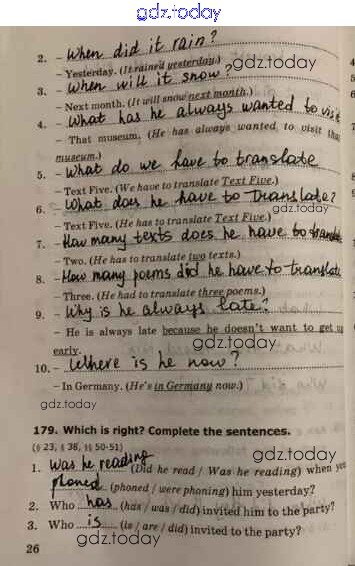 gdz.today
2. – When did it rain?
– Yesterday. (It rained yesterday.)
3. – When will it snow?
– Next month. (It will snow next month.)
4. – What has he always wanted to visit
– That museum. (He has always wanted to visit that
museum.)
5. – What do we have to translate
– Text Five. (We have to translate Text Five.)
6. – What does he have to translate?
– Text Five. (He has to translate Text Five.)
7. – How many texts does he have to translate
– Two. (He has to translate two texts.)
8. – How many poems did he have to translate
– Three. (He had to translate three poems.)
9. – Why is he always late?
– He is always late because he doesn't want to get up
early.
10. – Where is he now?
– In Germany. (He's in Germany now.)
179. Which is right? Complete the sentences.
(§ 23, § 38, §§ 50-51)
1. Was he reading (Did he read / Was he reading) when you
phoned (phoned / were phoning) him yesterday?
2. Who has (has / was / did) invited him to the party?
3. Who is (is / are / did) invited to the party?
26
gdz.today
gdz.today
gdz.today
gdz.today
gdz.today
gdz.today
gdz.today
gdz.today